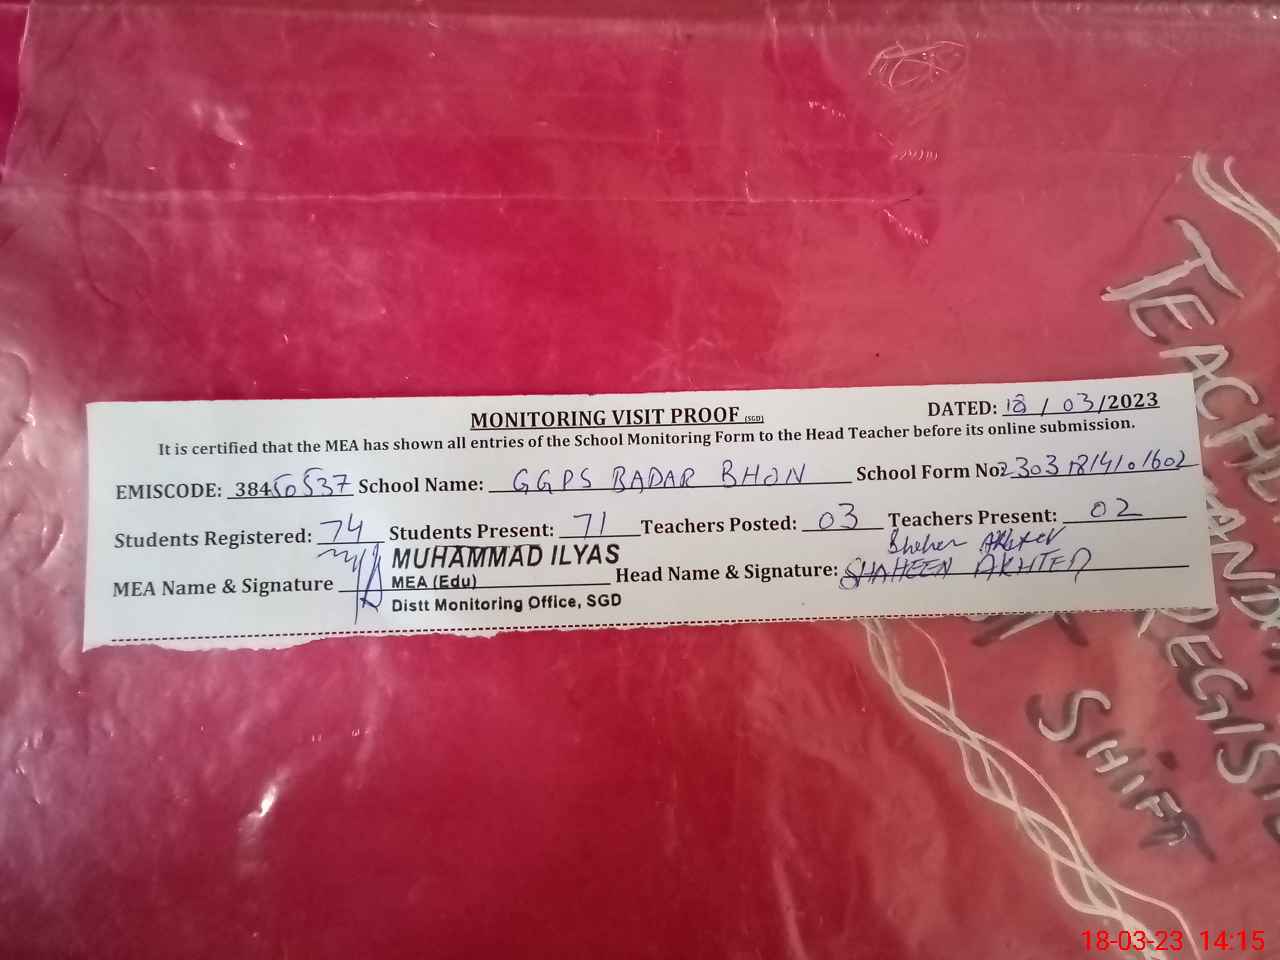 MONITORING VISIT PROOF (SGD) DATED: 18 / 03/2023
It is certified that the MEA has shown all entries of the School Monitoring Form to the Head Teacher before its online submission.
EMISCODE: 38450537 School Name: GGPS BADAR BHON School Form No: 23031814101602
Students Registered: 74 Students Present: 71 Teachers Posted: 03 Teachers Present: 02
MEA Name & Signature MUHAMMAD ILYAS
MEA (Edu)
Distt Monitoring Office, SGD
Head Name & Signature: SHAHEEN AKHTER
SHIFT
18-03-23 14:15